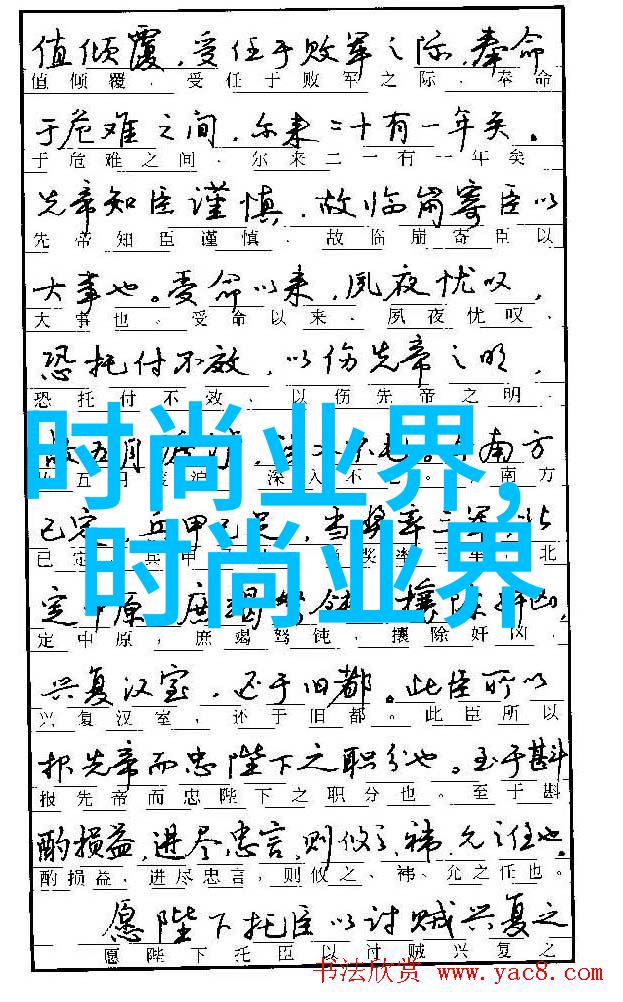 值倾覆，受任于败军之际，奉命
值倾覆，受任于败军之际，奉命
于危难之间，尔来二十有一年矣。
于危难之间，尔来二一有一年矣
先帝知臣谨慎，故临崩寄臣以
先帝知臣谨慎，故临崩寄臣以
大事也。受命以来，夙夜忧叹，
大事也。受命以来，夙夜忧叹，
恐托付不效，以伤先帝之明，
恐托付不效，以伤先帝之明，
故五月渡泸，深入不毛。今南方
五月渡泸，深入不毛。南方
时尚业界,
已定，兵甲已足，当奖率三军，北
已定，兵甲，奖率三军，北
时尚业界
定中原，庶竭驽钝，攘除奸凶，
定中原，庶竭驽钝，攘除奸凶，
兴复汉室，还于旧都。此臣所以
兴复汉室，还于旧都。此臣所以
报先帝而忠陛下之职分也。至于斟
报先帝而忠陛下之职分也。至于斟
酌损益，进尽忠言，则攸之、祎、允之任也。
酌损益，进尽忠言，则攸之、祎、允之任也。
愿陛下托臣以讨贼兴复之
愿陛下托臣以讨贼兴复之
书法欣赏 www.yac8.com